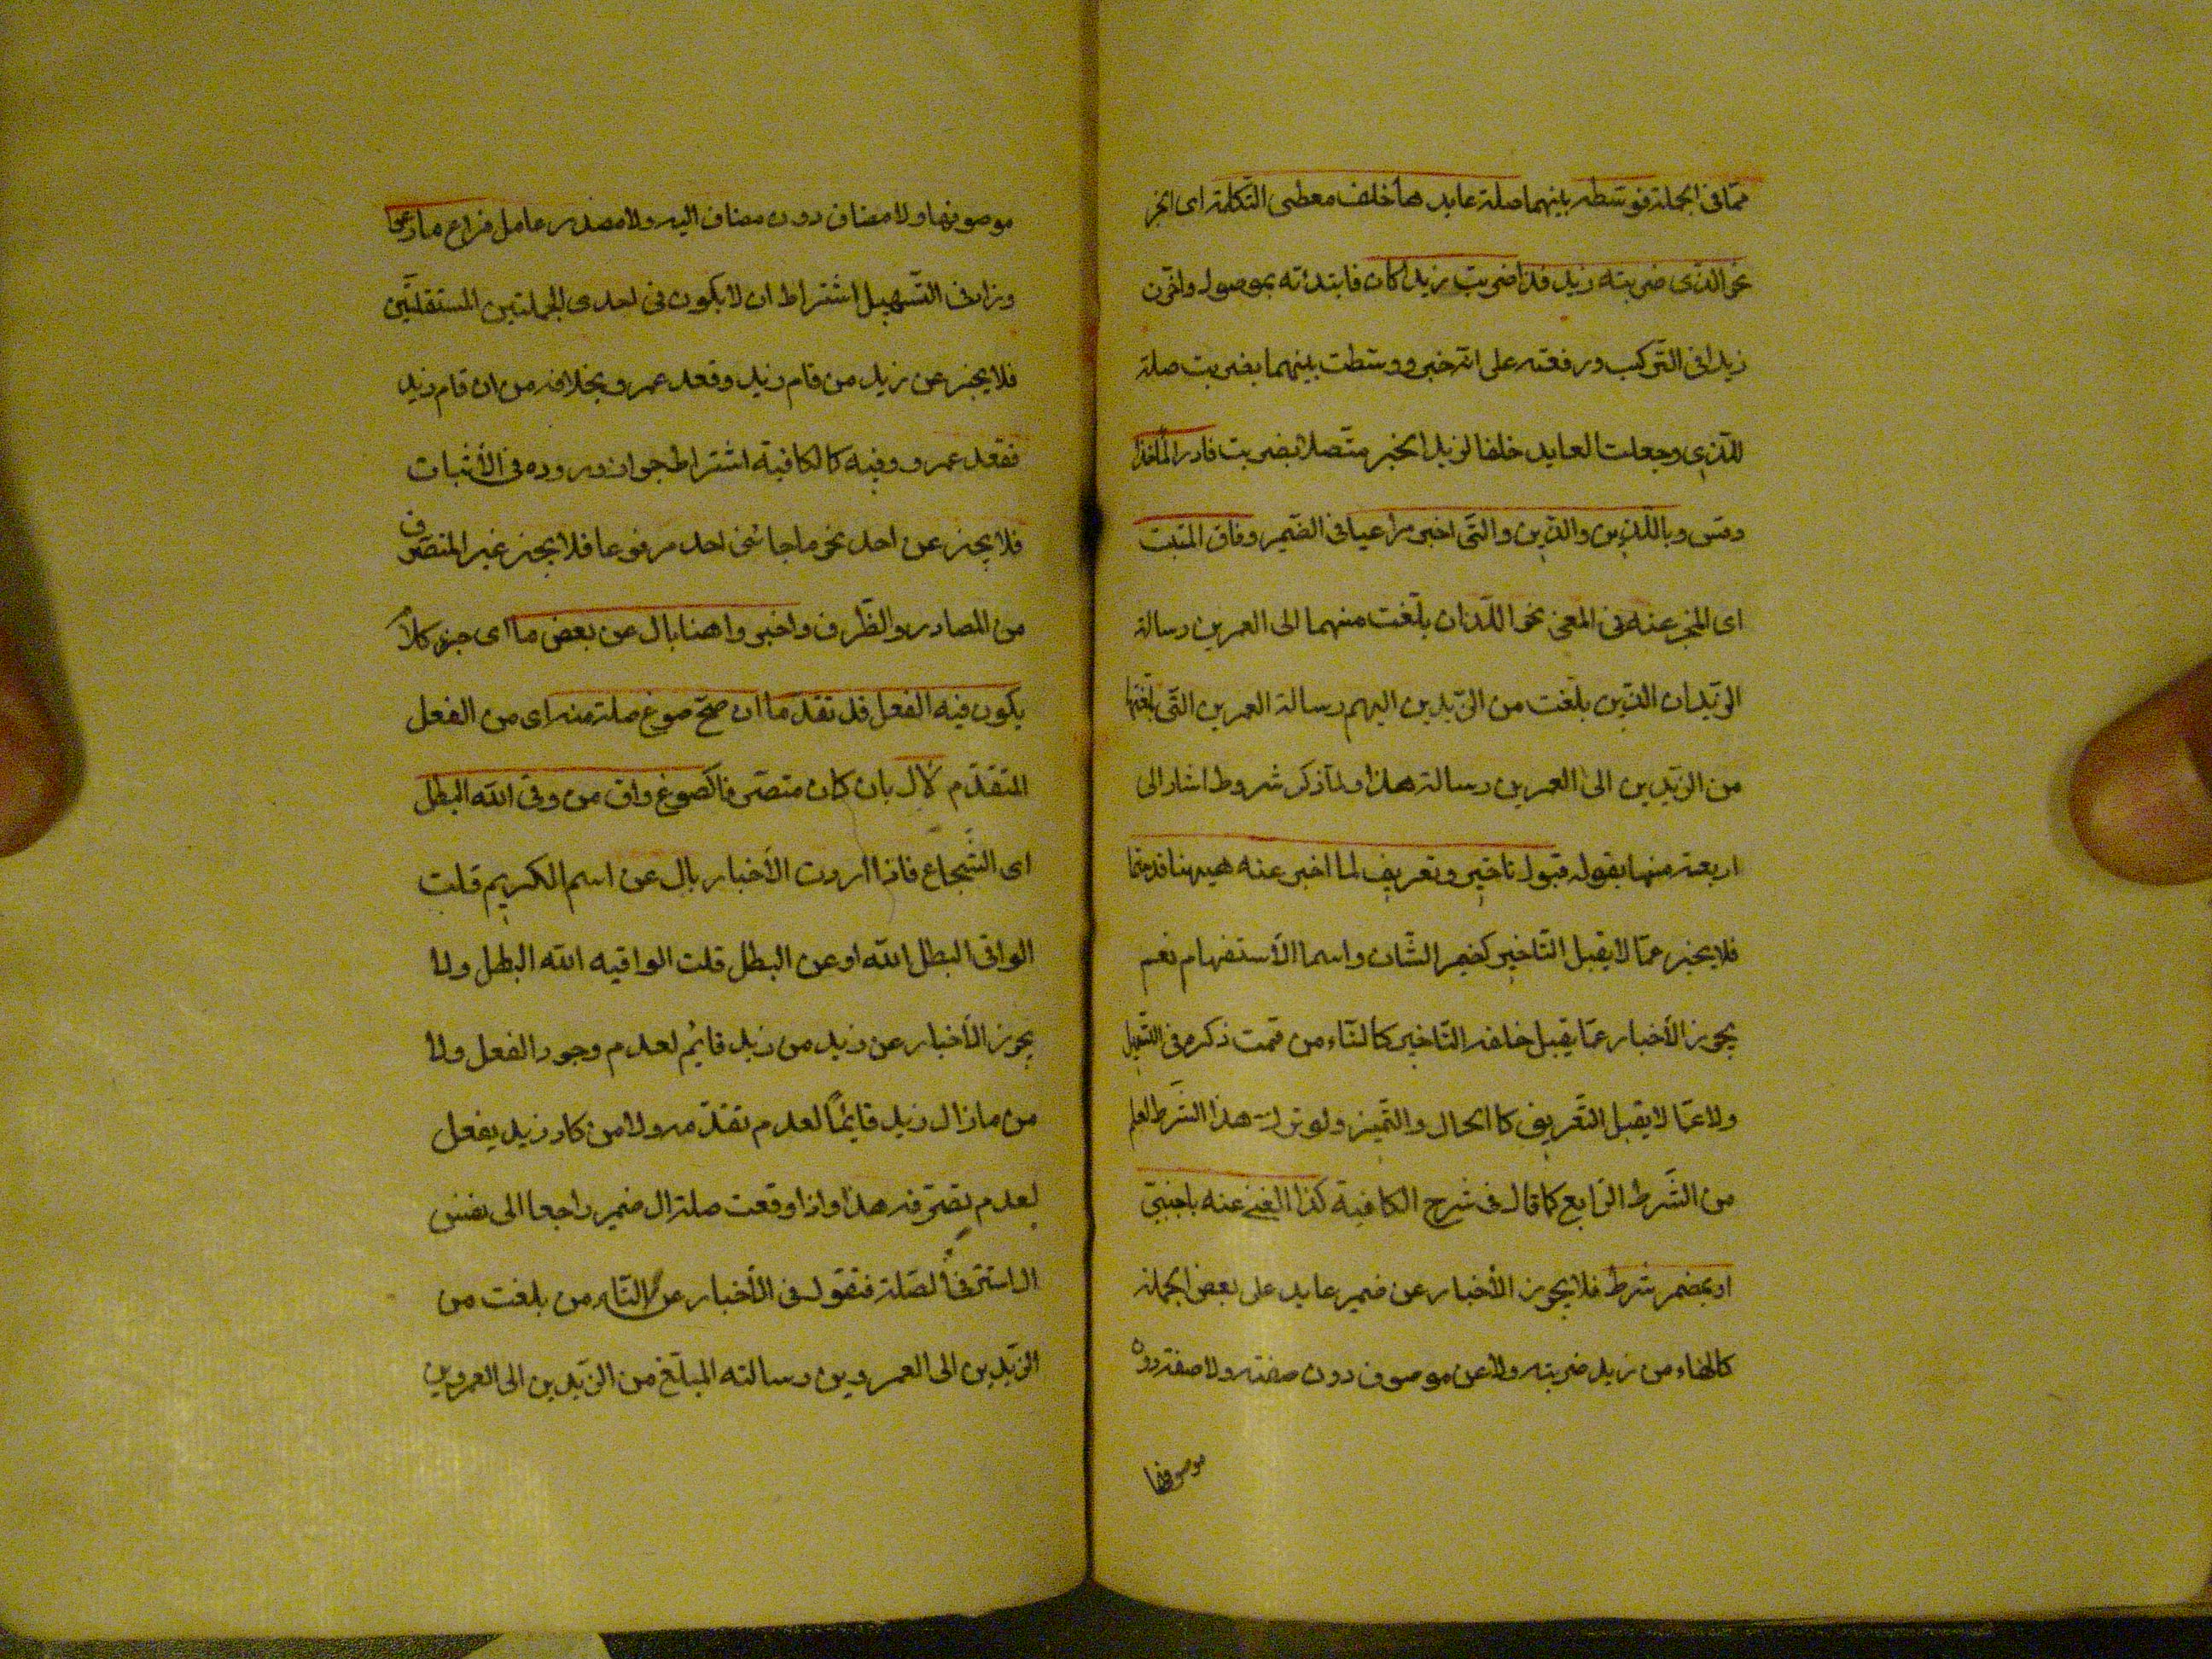 ممّا فى الجملة فوسّطه بينهما صلة عايدها خلف معطى التّكلمة اى الخبر
نحو الذّى ضربته زيد فذا ضربت زيدا كان فابتدئته بموصول واخّرت
زيدا فى التّركيب ورفعته على انّه خبر ووسّطت بينهما بضربت صلة
للّذى وجعلت العايد خلفا لزيد الخبر متّصلا بضربت فادر المأخذا
وقس وباللّذين والذّين والتّى اخبر مراعيا فى الضّمير وفاق المثبت
اى المخبر عنه فى المعنى نحو اللّذان بلّغت منهما الى العمرين رسالة
الزّيدان الذّين بلّغت من الزّيدين اليهم رسالة العمرين التّى بلّغتها
من الزّيدين الى العمرين رسالة هذا ولمّا ذكر شروط اشار الى
اربعة منها بقوله قبول تاخير وتعريف لما اخبر عنه ههنا قد حتما
فلا يخبر عمّا لا يقبل التّاخير كضمير الشّان واسما الأستفهام نعم
يجوز الأخبار عمّا يقبل خلفه التّاخير كالتّاء من قمت ذكره فى التّسهيل
ولا عمّا لا يقبل التّعريف كالحال والتّميز ولو ترك هذا الشّرط لعلم
من الشّرط الرّابع كما قال فى شرح الكافية كذا الغنى عنه باجنبىّ
او بمضمر شرط فلا يجوز الأخبار عن ضمير عايد على بعض الجملة
كالهاء من زيد ضربته ولا عن موصوف دون صفته ولا صفة دون
موصوفها
موصوفها ولا مضاف دون مضاف اليه ولا مصدر عامل فراع ما رعوا
وزاد فى التّسهيل اشتراط ان لا يكون فى احدى الجملتين المستقلّتين
فلا يخبر عن زيد من قام زيد وقعد عمرو بخلافه من ان قام زيد
فقعد عمرو وفيه كالكافية اشتراط جواز وروده فى الأثبات
فلا يخبر عن احد نحو ما جائنى احد مرفوعا فلا يخبر غير المنصرف
من المصادر والظّرف واخبروا هنا بال عن بعض ما اى جزء كلاّ
يكون فيه الفعل قد تقدّما ان صحّ صوغ صلة منه اى من الفعل
المتقدّم لأل بان كان متصّرفا كصوغ واق من وقى اللّه البطل
اى الشّجاع فاذا اردت الأخبار بال عن اسم الكريم قلت
الواقى البطل اللّه او عن البطل قلت الواقيه اللّه البطل ولا
يجوز الأخبار عن زيد من زيد قايم لعدم وجود الفعل ولا
من مازال زيد قايمًا لعدم تقدّمه ولا من كاد زيد يفعل
لعدم تصّرفه هذا واذا وقعت صلة ال ضمير راجعا الى نفس
ال استتر فى الصّلة فتقول فى الأخبار عن التّاء من بلغت من
الزّيدين الى العمروين رسالته المبلّغ من الزّيدين الى العمروين